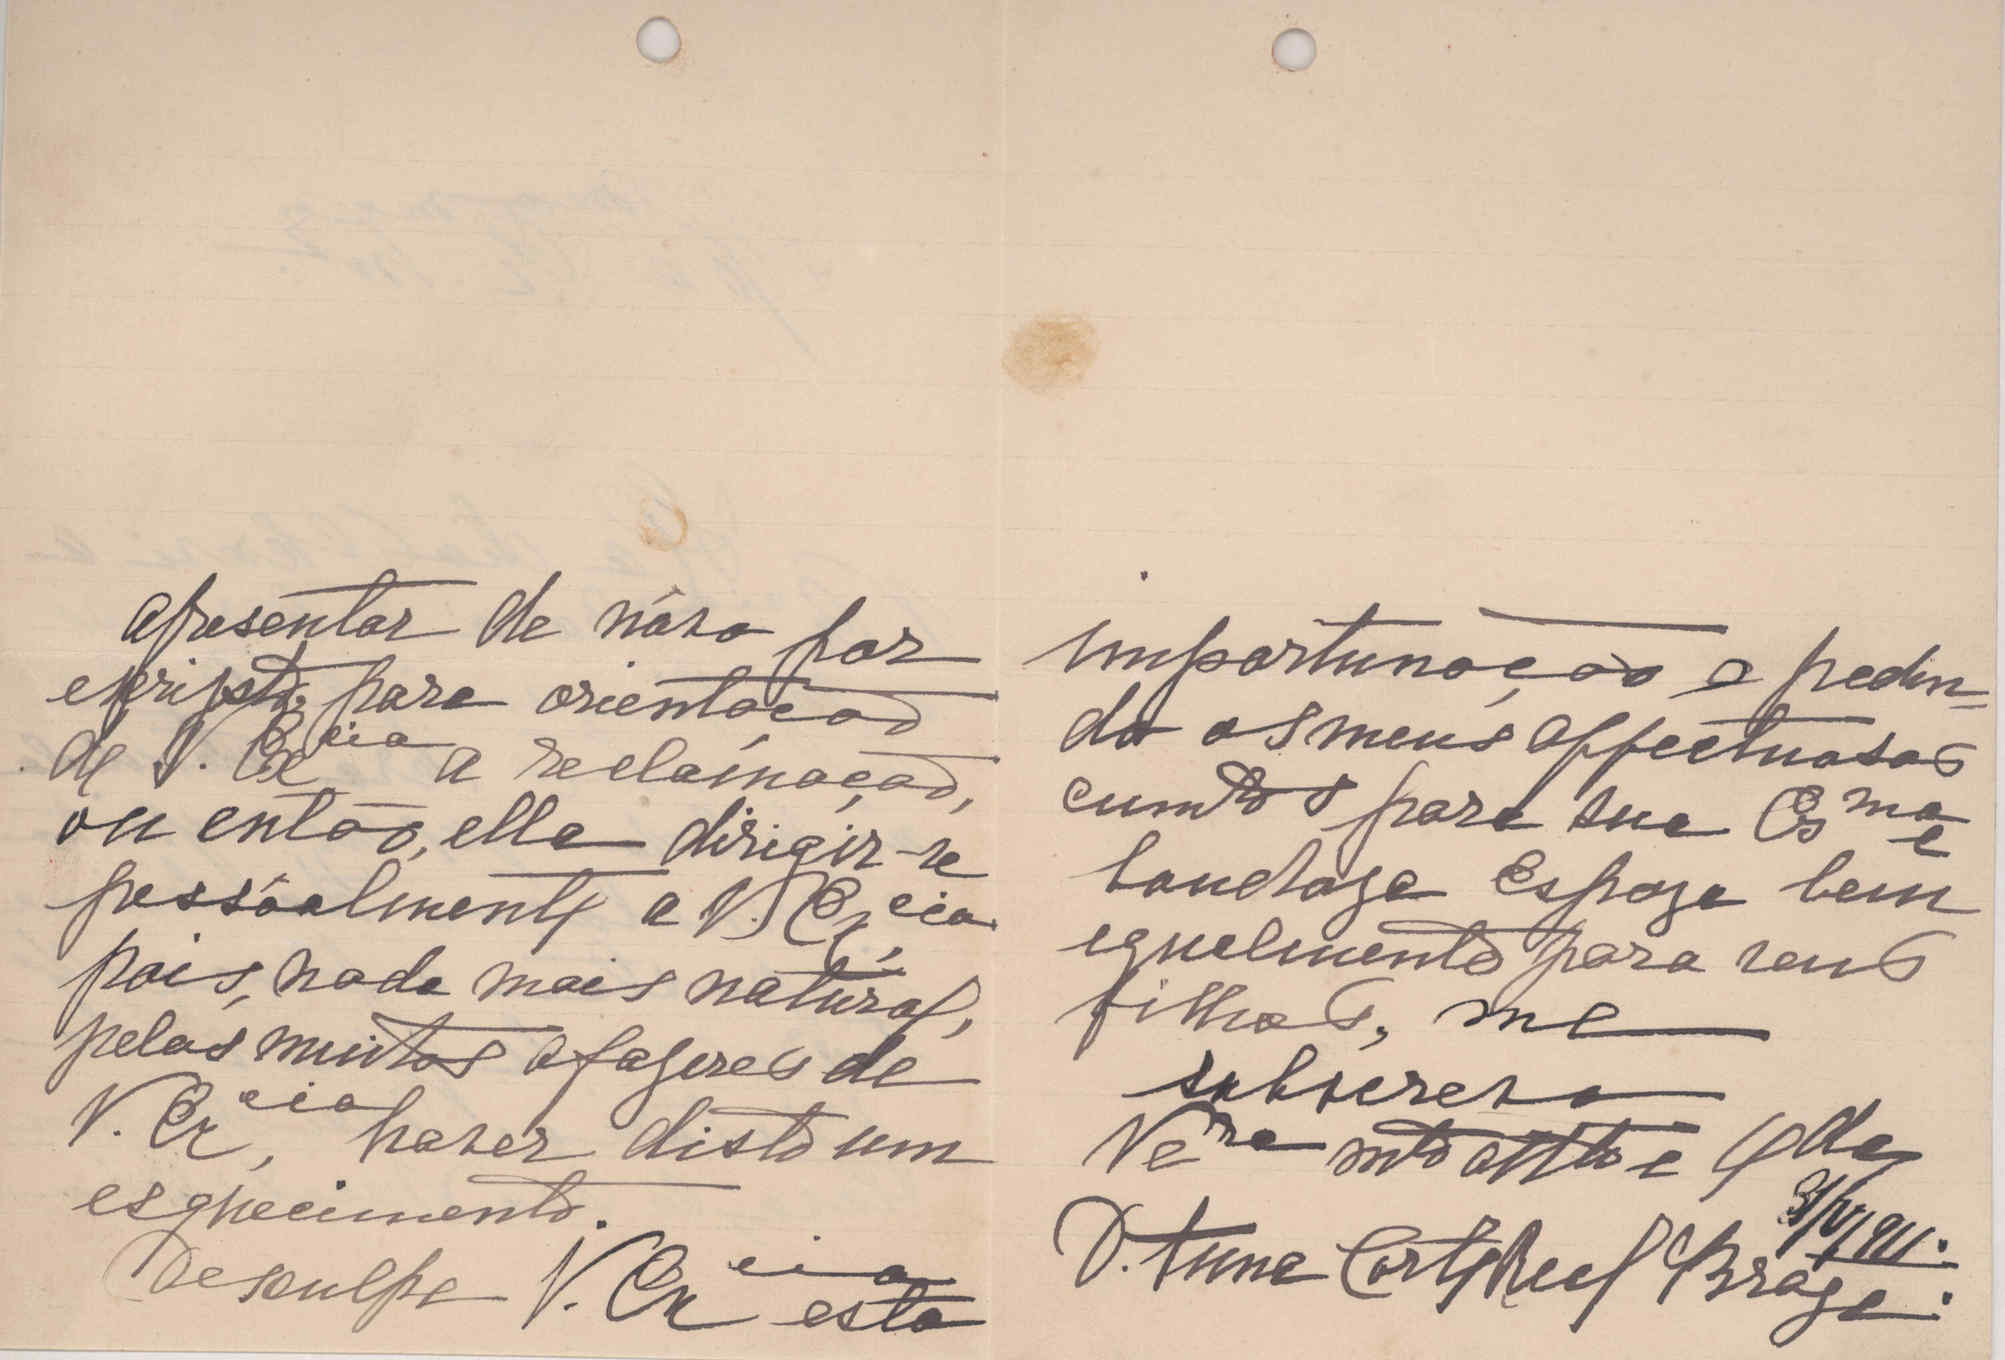 apresentar de novo por
escripto, para orientação
de V. Ex.cia a reclamação,
ou então, ella dirigir-se
pessoalmente a V. Ex.cia,
pois, nada mais natural,
pelos muitos afazeres de
V. Ex.cia, haver disto um
esquecimento.
Desculpe V. Ex.cia esta
importunação e pedin=
do os meus affectuosos
cumtos para sua Exma e
bondoza Espoza bem
egualmente para seus
filhos, me
subscrevo
Vera mto atta e
D. Côrte Real Braga.